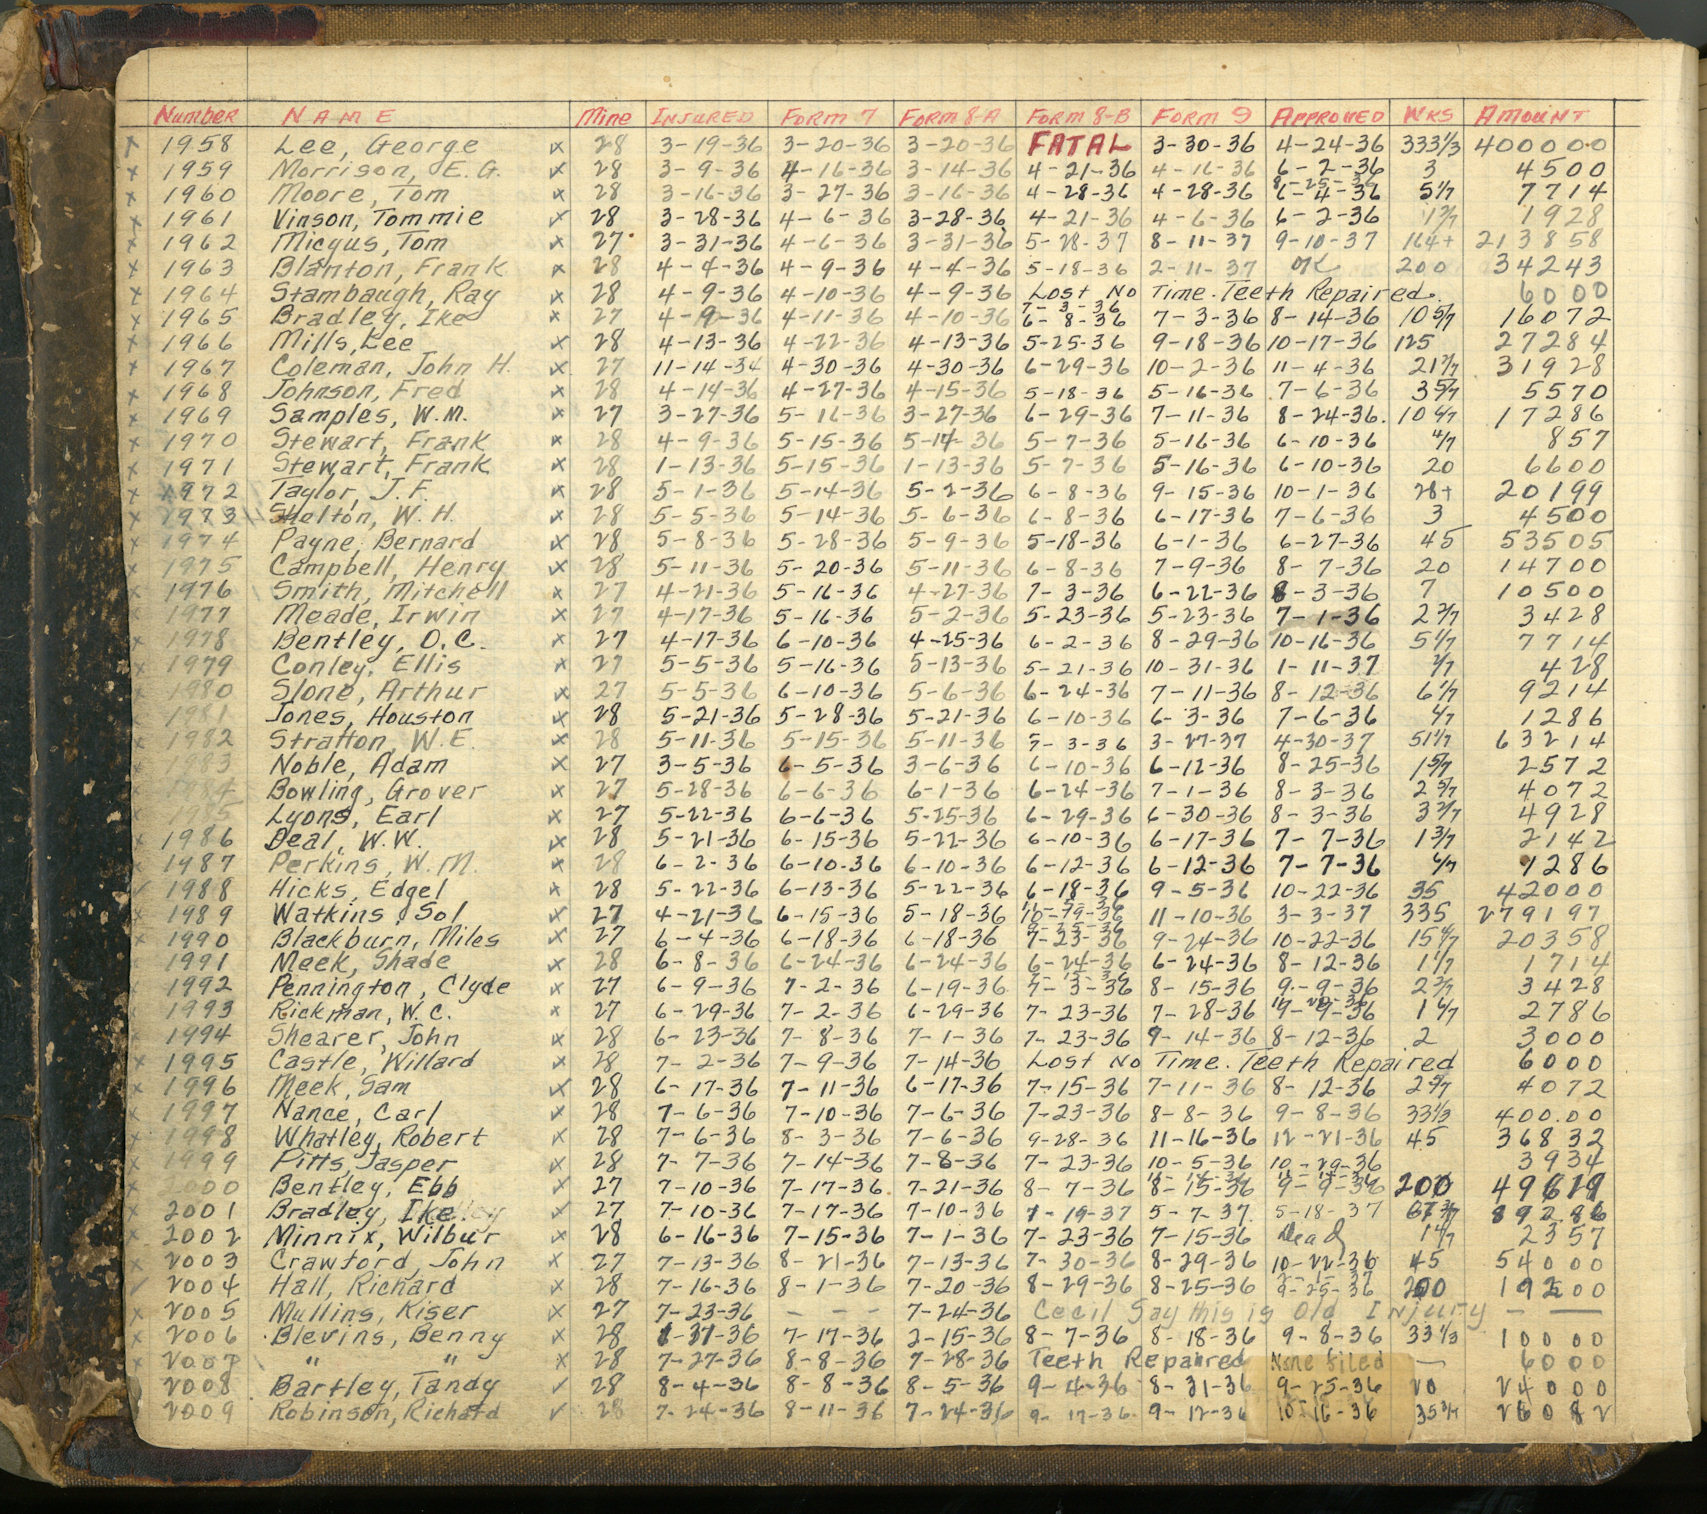 Number NAME Mine INJURED FORM 7 FORM 8-A FORM 8-B FORM 9 APPROVED WKS AMOUNT
x 1958 Lee, George x 28 3-19-36 3-20-36 3-20-36 FATAL 3-30-36 4-24-36 333 1/3 400000
x 1959 Morrison, E.G. x 28 3-9-36 4-16-36 3-14-36 4-21-36 4-16-36 6-2-36 3 4500
x 1960 Moore, Tom x 28 3-16-36 3-27-36 3-16-36 4-28-36 4-28-36 6-4-36 5 1/7 7714
x 1961 Vinson, Tommie x 28 3-28-36 4-6-36 3-28-36 4-21-36 4-6-36 6-2-36 1 2/7 1928
x 1962 Micyus, Tom x 27 3-31-36 4-6-36 3-31-36 5-28-37 8-11-37 9-10-37 164+ 213858
x 1963 Blanton, Frank x 28 4-4-36 4-9-36 4-4-36 5-18-36 2-11-37 OK 200 34243
x 1964 Stambaugh, Ray x 28 4-9-36 4-10-36 4-9-36 Lost No Time. Teeth Repaired. 6000
x 1965 Bradley, Ike x 27 4-9-36 4-11-36 4-10-36 7-3-36 6-8-36 7-3-36 8-14-36 10 5/7 16072
x 1966 Mills, Lee x 28 4-13-36 4-22-36 4-13-36 5-25-36 9-18-36 10-17-36 125 27284
x 1967 Coleman, John H. x 27 11-14-34 4-30-36 4-30-36 6-29-36 10-2-36 11-4-36 21 2/7 31928
x 1968 Johnson, Fred x 28 4-14-36 4-27-36 4-15-36 5-18-36 5-16-36 7-6-36 3 5/7 5570
x 1969 Samples, W.M. x 27 3-27-36 5-16-36 3-27-36 6-29-36 7-11-36 8-24-36. 10 6/7 17286
x 1970 Stewart, Frank x 28 4-9-36 5-15-36 5-14-36 5-7-36 5-16-36 6-10-36 4/7 857
x 1971 Stewart, Frank x 28 1-13-36 5-15-36 1-13-36 5-7-36 5-16-36 6-10-36 20 6600
x 1972 Taylor, J.F. x 28 5-1-36 5-14-36 5-2-36 6-8-36 9-15-36 10-1-36 28+ 20199
x 1973 Shelton, W.H. x 28 5-5-36 5-14-36 5-6-36 6-8-36 6-17-36 7-6-36 3 4500
x 1974 Payne, Bernard x 28 5-8-36 5-28-36 5-9-36 5-18-36 6-1-36 6-27-36 45 53505
x 1975 Campbell, Henry x 28 5-11-36 5-20-36 5-11-36 6-8-36 7-9-36 8-7-36 20 14700
x 1976 Smith, Mitchell x 27 4-21-36 5-16-36 4-27-36 7-3-36 6-22-36 8-3-36 7 10500
x 1977 Meade, Irwin x 27 4-17-36 5-16-36 5-2-36 5-23-36 5-23-36 7-1-36 2 2/7 3428
x 1978 Bentley, O.C. x 27 4-17-36 6-10-36 4-25-36 6-2-36 8-29-36 10-16-36 5 1/7 7714
x 1979 Conley, Ellis x 27 5-5-36 5-16-36 5-13-36 5-21-36 10-31-36 1-11-37 2/7 428
x 1980 Slone, Arthur x 27 5-5-36 6-10-36 5-6-36 6-24-36 7-11-36 8-12-36 6 1/7 9214
x 1981 Jones, Houston x 28 5-21-36 5-28-36 5-21-36 6-10-36 6-3-36 7-6-36 6/7 1286
x 1982 Stratton, W.E. x 28 5-11-36 5-15-36 5-11-36 7-3-36 3-27-37 4-30-37 51 1/7 63214
x 1983 Noble, Adam x 27 3-5-36 6-5-36 3-6-36 6-10-36 6-12-36 8-25-36 1 5/7 2572
x 1984 Bowling, Grover x 27 5-28-36 6-6-36 6-1-36 6-24-36 7-1-36 8-3-36 2 5/7 4072
x 1985 Lyons, Earl x 27 5-22-36 6-6-36 5-25-36 6-29-36 6-30-36 8-3-36 3 2/7 4928
x 1986 Deal, W.W. x 28 5-21-36 6-15-36 5-22-36 6-10-36 6-17-36 7-7-36 1 3/7 2142
x 1987 Perkins, W.M. x 28 6-2-36 6-10-36 6-10-36 6-12-36 6-12-36 7-7-36 6/7 1286
✓ 1988 Hicks, Edgel x 28 5-22-36 6-13-36 5-22-36 6-18-36 9-5-36 10-22-36 35 42000
x 1989 Watkins, Sol x 27 4-21-36 6-15-36 5-18-36 10-19-36 11-10-36 3-3-37 335 279197
x 1990 Blackburn, Miles x 27 6-4-36 6-18-36 6-18-36 7-23-36 9-24-36 10-22-36 15 4/7 20358
x 1991 Meek, Shade x 28 6-8-36 6-24-36 6-24-36 6-24-36 6-24-36 8-12-36 1 1/7 1714
x 1992 Pennington, Clyde x 27 6-9-36 7-2-36 6-19-36 7-3-36 8-15-36 9-9-36 2 2/7 3428
x 1993 Rickman, W.C. x 27 6-29-36 7-2-36 6-29-36 7-23-36 7-28-36 9-9-36 1 6/7 2786
x 1994 Shearer, John x 28 6-23-36 7-8-36 7-1-36 7-23-36 9-14-36 8-12-36 2 3000
x 1995 Castle, Willard x 28 7-2-36 7-9-36 7-14-36 Lost No Time. Teeth Repaired 6000
x 1996 Meek, Sam x 28 6-17-36 7-11-36 6-17-36 7-15-36 7-11-36 8-12-36 2 5/7 4072
x 1997 Nance, Carl x 28 7-6-36 7-10-36 7-6-36 7-23-36 8-8-36 9-8-36 33 1/3 400.00
x 1998 Whatley, Robert x 28 7-6-36 8-3-36 7-6-36 9-28-36 11-16-36 12-21-36 45 36832
x 1999 Pitts, Jasper x 28 7-7-36 7-14-36 7-8-36 7-23-36 10-5-36 10-29-36 3934
x 2000 Bentley, Ebb ✓ 27 7-10-36 7-17-36 7-21-36 8-7-36 8-15-36 9-9-36 200 49619
x 2001 Bradley, Ike ✓ 27 7-10-36 7-17-36 7-10-36 1-19-37 5-7-37 5-18-37 67 3/7 89286
x 2002 Minnix, Wilbur ✓ 28 6-16-36 7-15-36 7-1-36 7-23-36 7-15-36 Dead 1 4/7 2357
x 2003 Crawford, John x 27 7-13-36 8-21-36 7-13-36 7-30-36 8-29-36 10-22-36 45 54000
✓ 2004 Hall, Richard x 28 7-16-36 8-1-36 7-20-36 8-29-36 8-25-36 9-25-36 200 19200
x 2005 Mullins, Kiser x 27 7-23-36 - - - 7-24-36 Cecil Say this is Old Injury - —
x 2006 Blevins, Benny x 28 1-31-36 7-17-36 2-15-36 8-7-36 8-18-36 9-8-36 33 1/3 10000
x 2007 " " x 28 7-27-36 8-8-36 7-28-36 Teeth Repaired None filed — 6000
2008 Bartley, Tandy ✓ 28 8-4-36 8-8-36 8-5-36 9-4-36 8-31-36 9-25-36 20 24000
2009 Robinson, Richard ✓ 28 7-24-36 8-11-36 7-24-36 9-17-36 9-12-36 10-16-36 35 3/7 26082